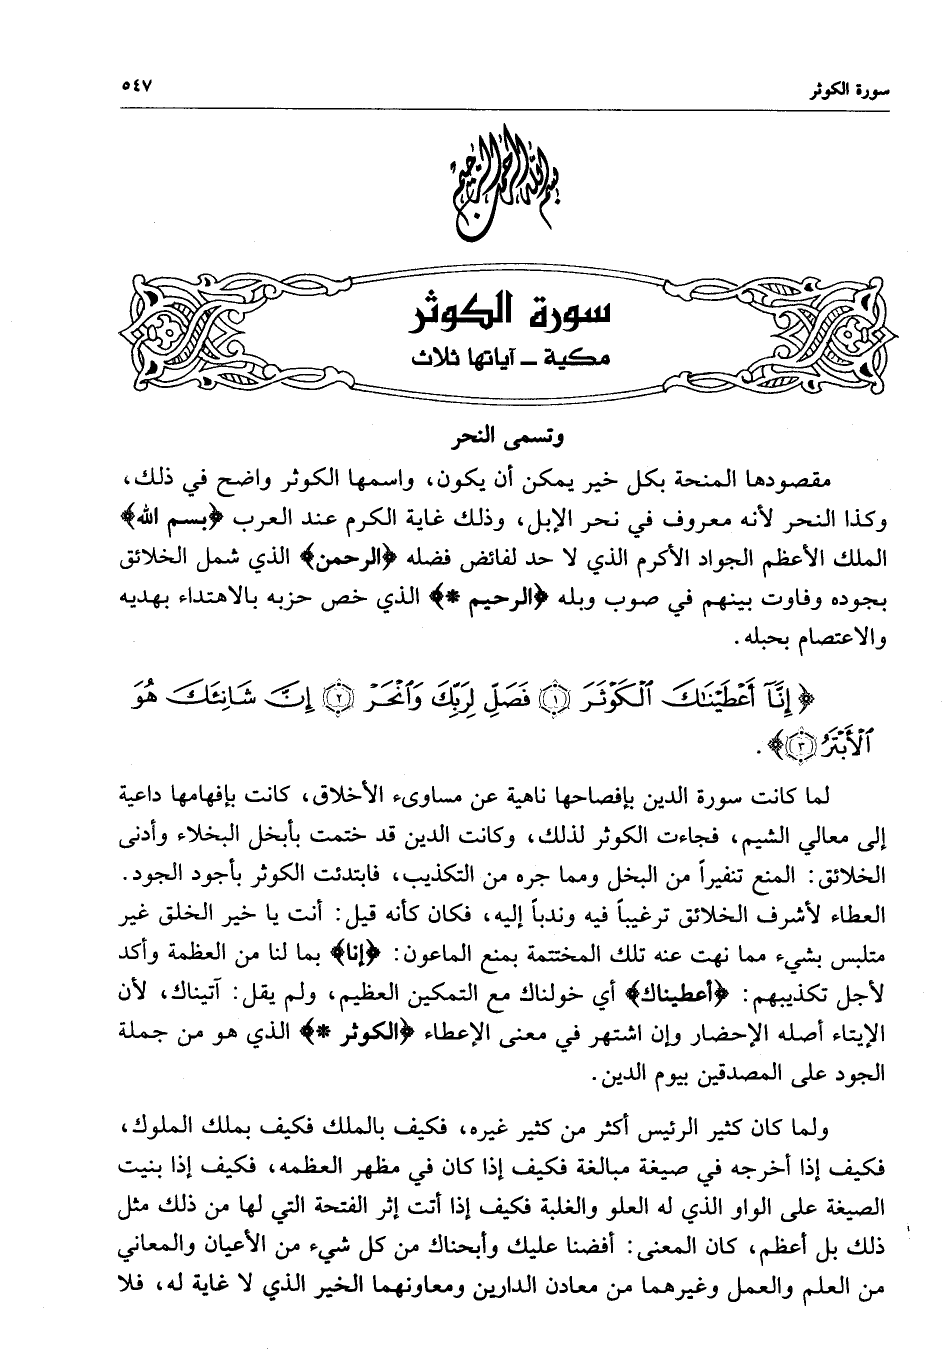 سورة الكوثر ٥٤٧
بسم الله الرحمن الرحيم
سورة الكوثر
مكية ـ آياتها ثلاث
وتسمى النحر
مقصودها المنحة بكل خير يمكن أن يكون، واسمها الكوثر واضح في ذلك،
وكذا النحر لأنه معروف في نحر الإبل، وذلك غاية الكرم عند العرب ﴿بسم الله﴾
الملك الأعظم الجواد الأكرم الذي لا حد لفائض فضله ﴿الرحمن﴾ الذي شمل الخلائق
بجوده وفاوت بينهم في صوب وبله ﴿الرحيم *﴾ الذي خص حزبه بالاهتداء بهديه
والاعتصام بحبله.
﴿إِنَّآ أَعْطَيْنَٰكَ ٱلْكَوْثَرَ ١ فَصَلِّ لِرَبِّكَ وَٱنْحَرْ ٢ إِنَّ شَانِئَكَ هُوَ
ٱلْأَبْتَرُ ٣﴾.
لما كانت سورة الدين بإفصاحها ناهية عن مساوىء الأخلاق، كانت بإفهامها داعية
إلى معالي الشيم، فجاءت الكوثر لذلك، وكانت الدين قد ختمت بأبخل البخلاء وأدنى
الخلائق: المنع تنفيراً من البخل ومما جره من التكذيب، فابتدئت الكوثر بأجود الجود.
العطاء لأشرف الخلائق ترغيباً فيه وندباً إليه، فكان كأنه قيل: أنت يا خير الخلق غير
متلبس بشيء مما نهت عنه تلك المختتمة بمنع الماعون: ﴿إنا﴾ بما لنا من العظمة وأكد
لأجل تكذيبهم: ﴿أعطيناك﴾ أي خولناك مع التمكين العظيم، ولم يقل: آتيناك، لأن
الإيتاء أصله الإحضار وإن اشتهر في معنى الإعطاء ﴿الكوثر *﴾ الذي هو من جملة
الجود على المصدقين بيوم الدين.
ولما كان كثير الرئيس أكثر من كثير غيره، فكيف بالملك فكيف بملك الملوك،
فكيف إذا أخرجه في صيغة مبالغة فكيف إذا كان في مظهر العظمه، فكيف إذا بنيت
الصيغة على الواو الذي له العلو والغلبة فكيف إذا أتت إثر الفتحة التي لها من ذلك مثل
ذلك بل أعظم، كان المعنى: أفضنا عليك وأبحناك من كل شيء من الأعيان والمعاني
من العلم والعمل وغيرهما من معادن الدارين ومعاونهما الخير الذي لا غاية له، فلا